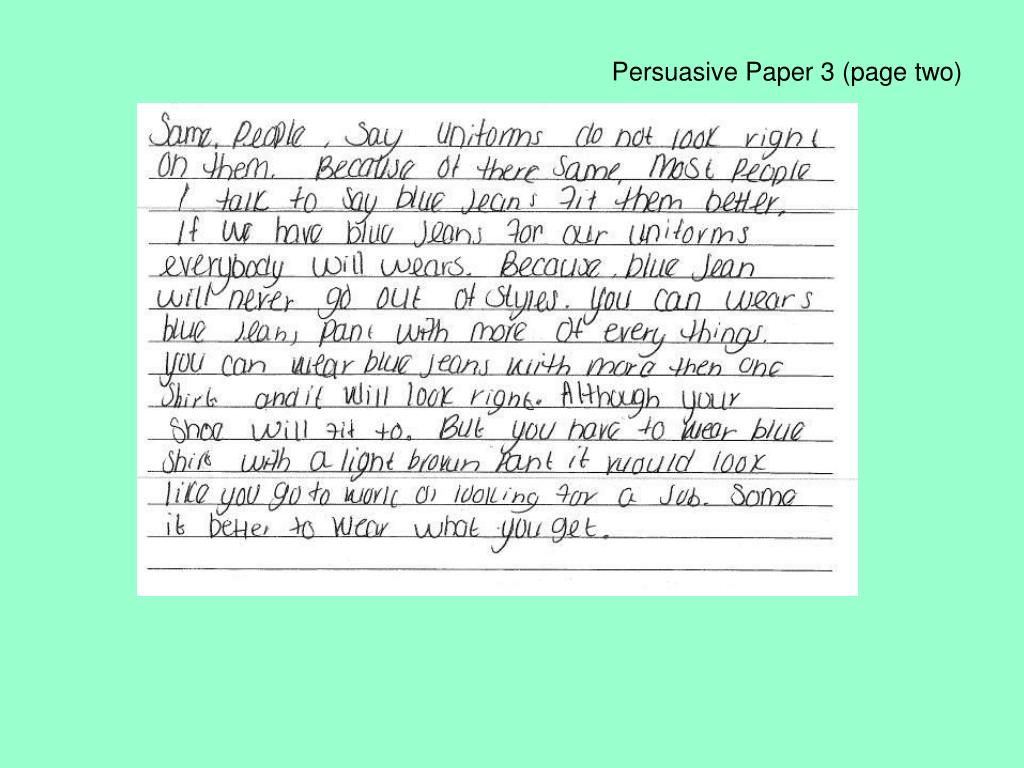 Persuasive Paper 3 (page two)
Some, people, say uniforms do not look right
on them. Because of there same, most people
I talk to say blue jeans fit them better.
If we have blue jeans for our uniforms
everybody will wears. Because, blue jean
will never go out of styles. you can wears
blue jeans pant with more of every things.
you can wear blue jeans with more then one
shirt and it will look right. Although your
shoe will fit to. But you have to wear blue
shirt with a light brown pant it would look
like you go to work or looking for a job. Some
it better to wear what you get.